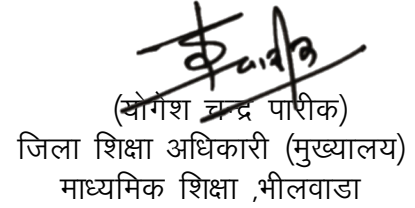 (योगेश चन्द्र पारीक)
जिला शिक्षा अधिकारी (मुख्यालय)
माध्यमिक शिक्षा ,भीलवाडा